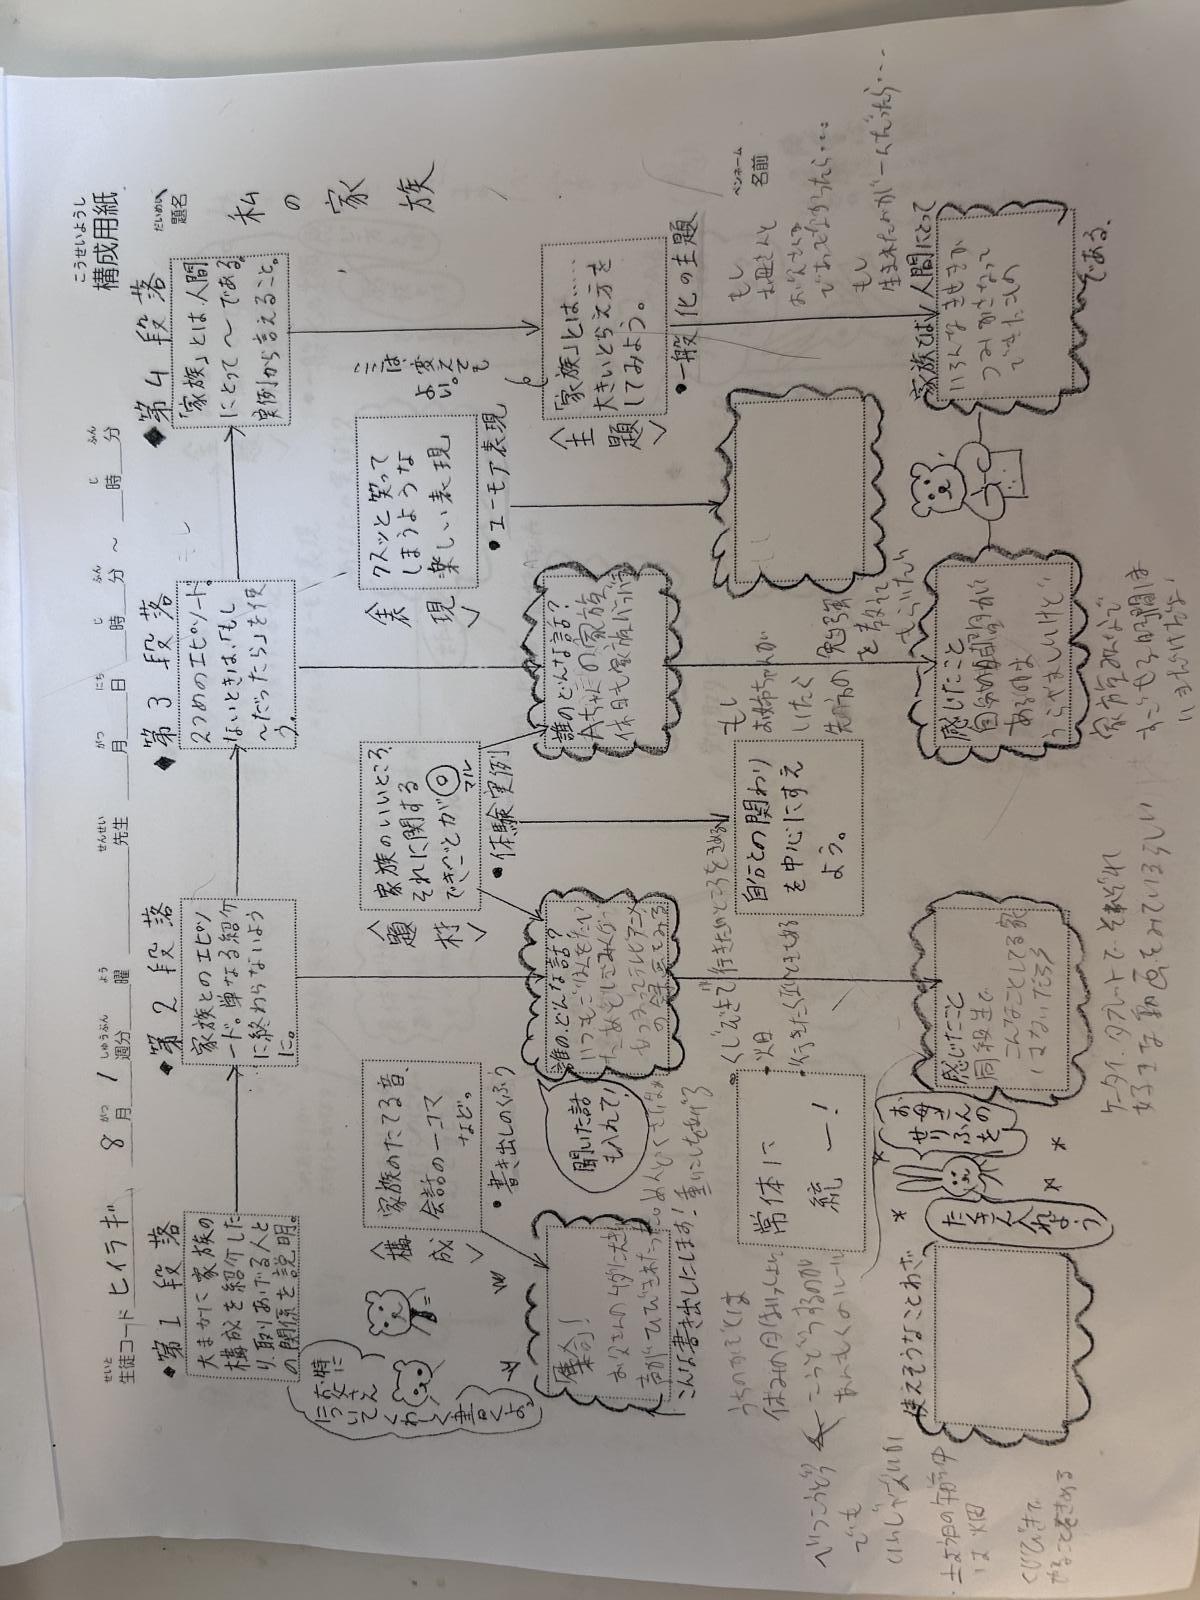 構成用紙
こうせいようし
生徒コード ヒイラギ 8月 1週分 曜 先生 月 日 時 分 ～ 時 分
題名
だいめい
私の家族
ペンネーム
名前
◆第1段落
大まかに家族の
構成を紹介した
り、取りあげる人と
の関係を説明。
◆第2段落
家族とのエピソ
ード。単なる紹介
に終わらないよう
に。
◆第3段落
2つめのエピソード。
ないときは、「もし
～だったら」を使
う。
◆第4段落
「家族」とは、人間
にとって～～である。
実例から言えること。
特に
お父さん
について
くわしく
書くよ。
〈構成〉
家族のたてる音、
会話の一コマ
など。
・書き出しのくふう
〈題材〉
家族のいいところ、
それに関する
できごとが◎
マル
・体験実例
〈表現〉
クスッと笑って
しまうような
楽しい表現
・ユーモア表現
ここは、変えても
よい。
〈主題〉
「家族」とは……
大きいとらえ方を
してみよう。
・一般化の主題
集合！
お父さんの
こんな書き出しにします！
聞いた話
も入れて！
誰のどんな話？
いつも
誰のどんな話？
Aちゃんの家族、
休日も家族バラバラ
うちのかぞくは
休みの日はいっしょに
こうどうするのが
常体に
統一！
・くじびきで行きたいところをきめる
・畑
自分との関わり
を中心にすえ
よう。
もし
お姉ちゃんが
いたら
勉強
を教えて
もらいたい
もし
お母さんと
お父さんが
であってなかったら…
もし
生まれたのが
使えそうなことわざ
お母さんの
せりふを
たくさん入れよう
感じたこと
同級生で
こんなことしてる家
はないだろう
ケータイ、タブレットでそれぞれ
好きな動画をみているらしい
感じたこと
自分の時間が
あるのは
うらやましいけど
家族みんなで
すごせる時間は
家族とは、人間にとって
いろんなきせきが
つみかさなって
できたもの
である。
でも
いいじゃないか
・土よう日の午前中
は畑
くじびきで
やることをきめる